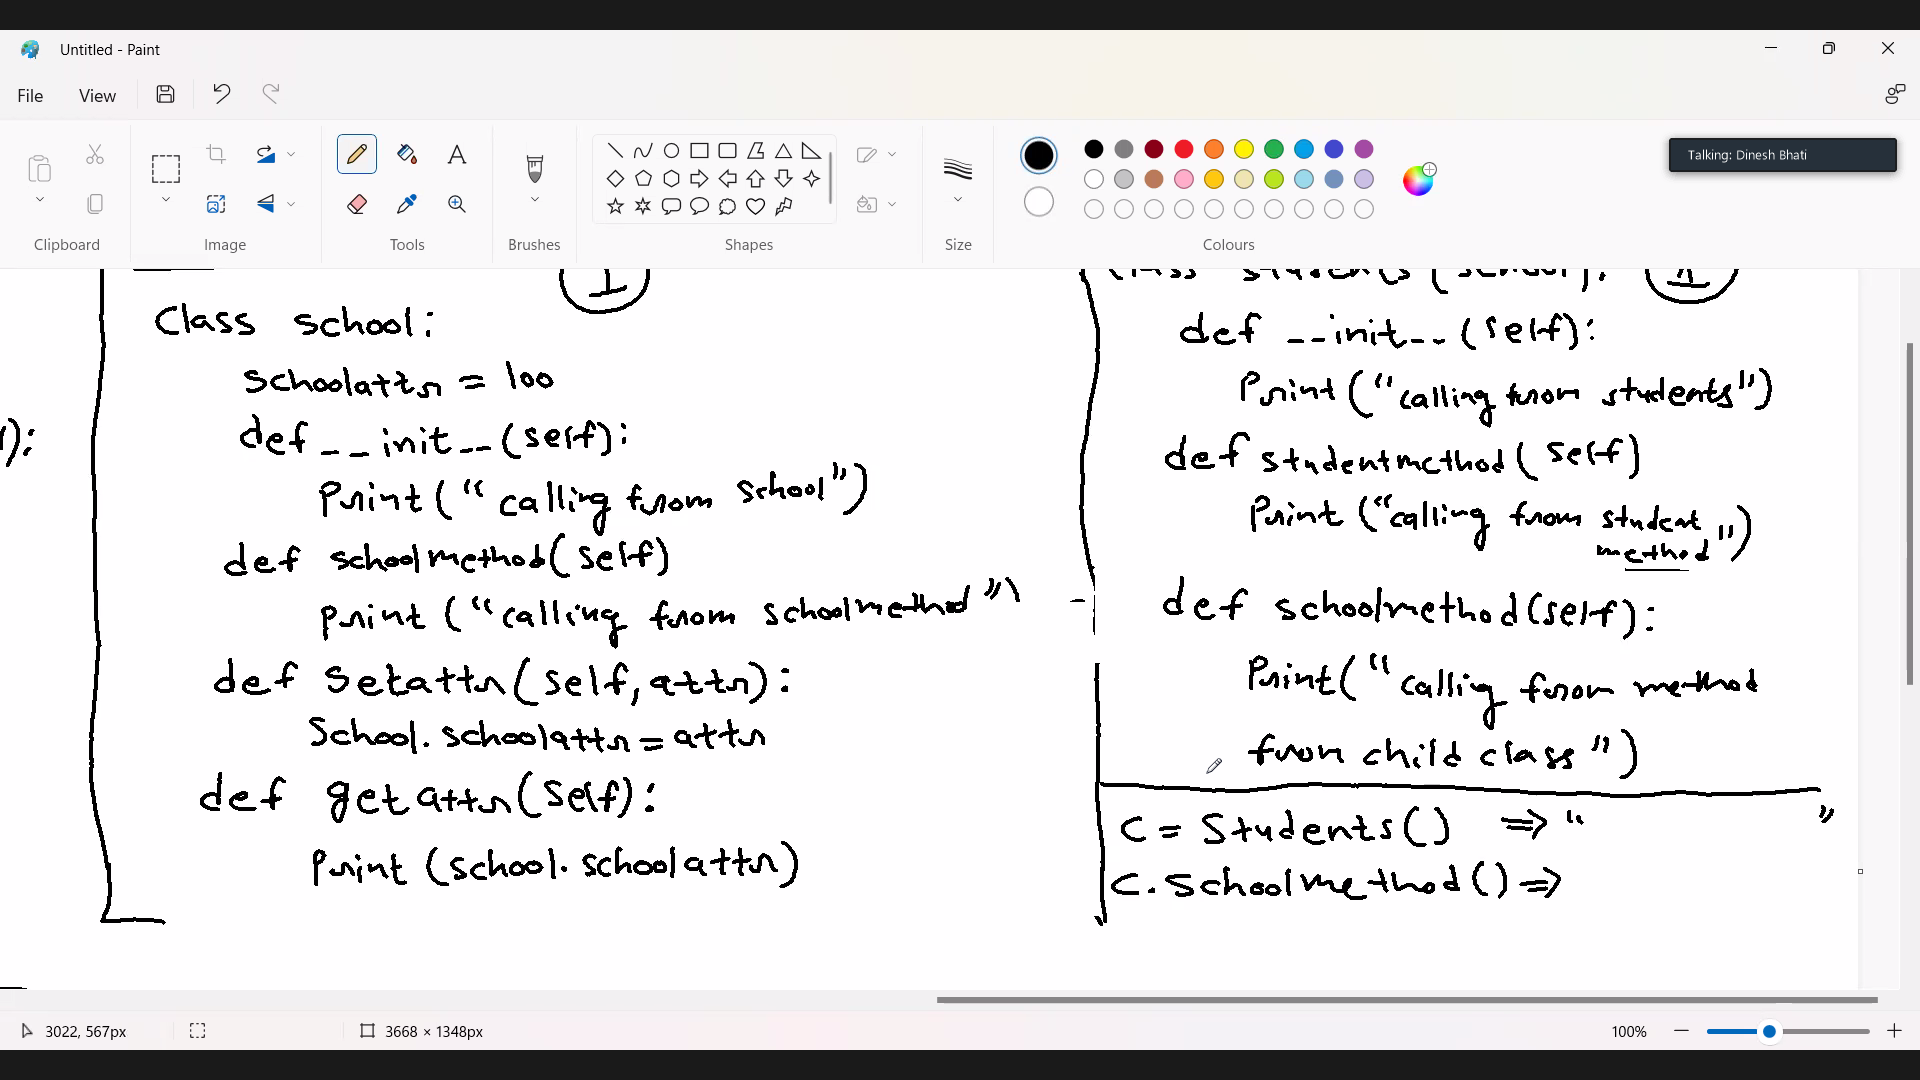 Untitled - Paint
File View
Talking: Dinesh Bhati
Clipboard Image Tools Brushes Shapes Size Colours
I
Class school:
schoolattr = 100
def __init__(self):
Print(“calling from school”)
def schoolmethod(self)
print (“calling from schoolmethod”)
def setattr(self, attr):
School.schoolattr = attr
def getattr(self):
Print (school.schoolattr)
):
class students (school): II
def __init__(self):
Print(“calling from students”)
def studentmethod(self)
Print (“calling from student
method”)
def schoolmethod(self):
Print(“calling from method
from child class”)
C = Students() ⇒ “ ”
C.Schoolmethod() ⇒
3022, 567px 3668 × 1348px 100%